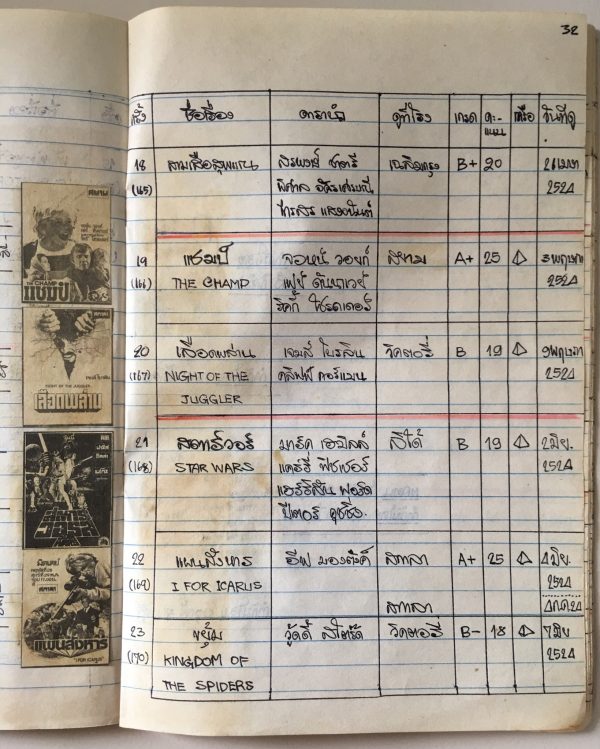 32
ครั้ง ชื่อเรื่อง ดารานำ ดูที่โรง เกรด คะ-แนน เครือ วันที่ดู
18 สามเสือสุพรรณ สรพงษ์ ชาตรี เฉลิมกรุง B+ 20 26 เมษา
(165) พิศาล อัครเศรณี 2524
ไกรสร แสงอนันต์
19 แชมป์ จอนห์ วอยท์ สยาม A+ 25 3 พฤษภา
(166) THE CHAMP เฟย์ ดันนาเวย์ 2524
ริคกี้ ชโรดเดอร์
20 เลือดพล่าน เจมส์ โบรลิน วิคตอรี่ B 19 9 พฤษภา
(167) NIGHT OF THE คลิฟฟ์ กอร์แมน 2524
JUGGLER
21 สตาร์วอร์ มาร์ค เฮมิลล์ ลิโด้ B 19 2 มิย.
(168) STAR WARS แครี่ ฟิชเชอร์ 2524
แฮร์ริสัน ฟอร์ด
ปีเตอร์ คุชชิ่ง.
22 แผนสังหาร อีฟ มองตังค์ สกาลา A+ 25 4 มิย.
(169) I FOR ICARUS 2524
สกาลา 4 กค 24
23 ขยุ้ม วิคตอรี่ B- 18 7 มิย
(170) KINGDOM OF 2524
THE SPIDERS
สยาม
THE CHAMP
แชมป์
NIGHT OF THE JUGGLER
เลือดพล่าน
STAR WARS
แผนสังหาร
I FOR ICARUS